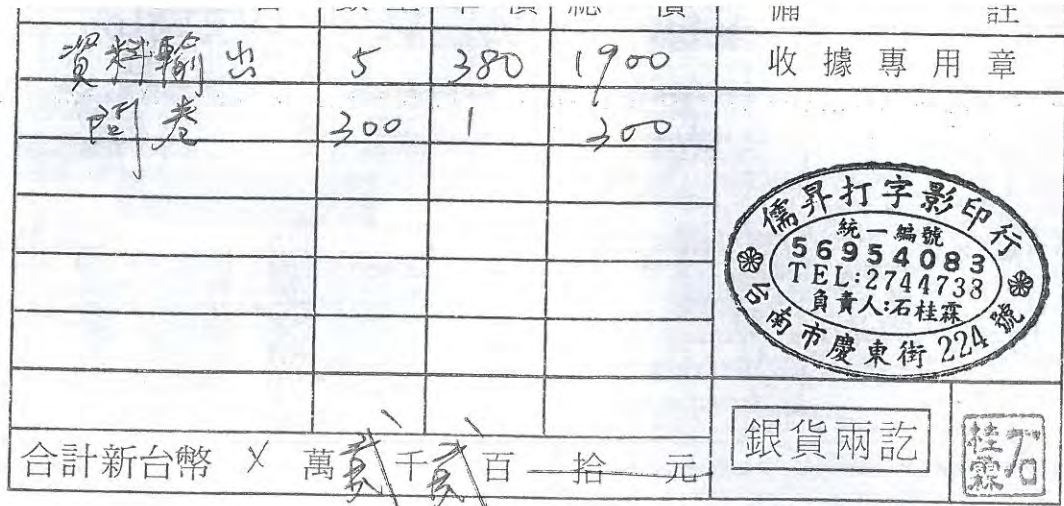 價 總 價 備 註
資料輸出 5 380 1900 收據專用章
問卷 300 1 300
儒昇打字影印行
統一編號
56954083
TEL:2744733
負責人:石桂霖
台南市慶東街224號
銀貨兩訖
石桂霖
合計新台幣 X 萬 貳 千 貳 百 拾 元